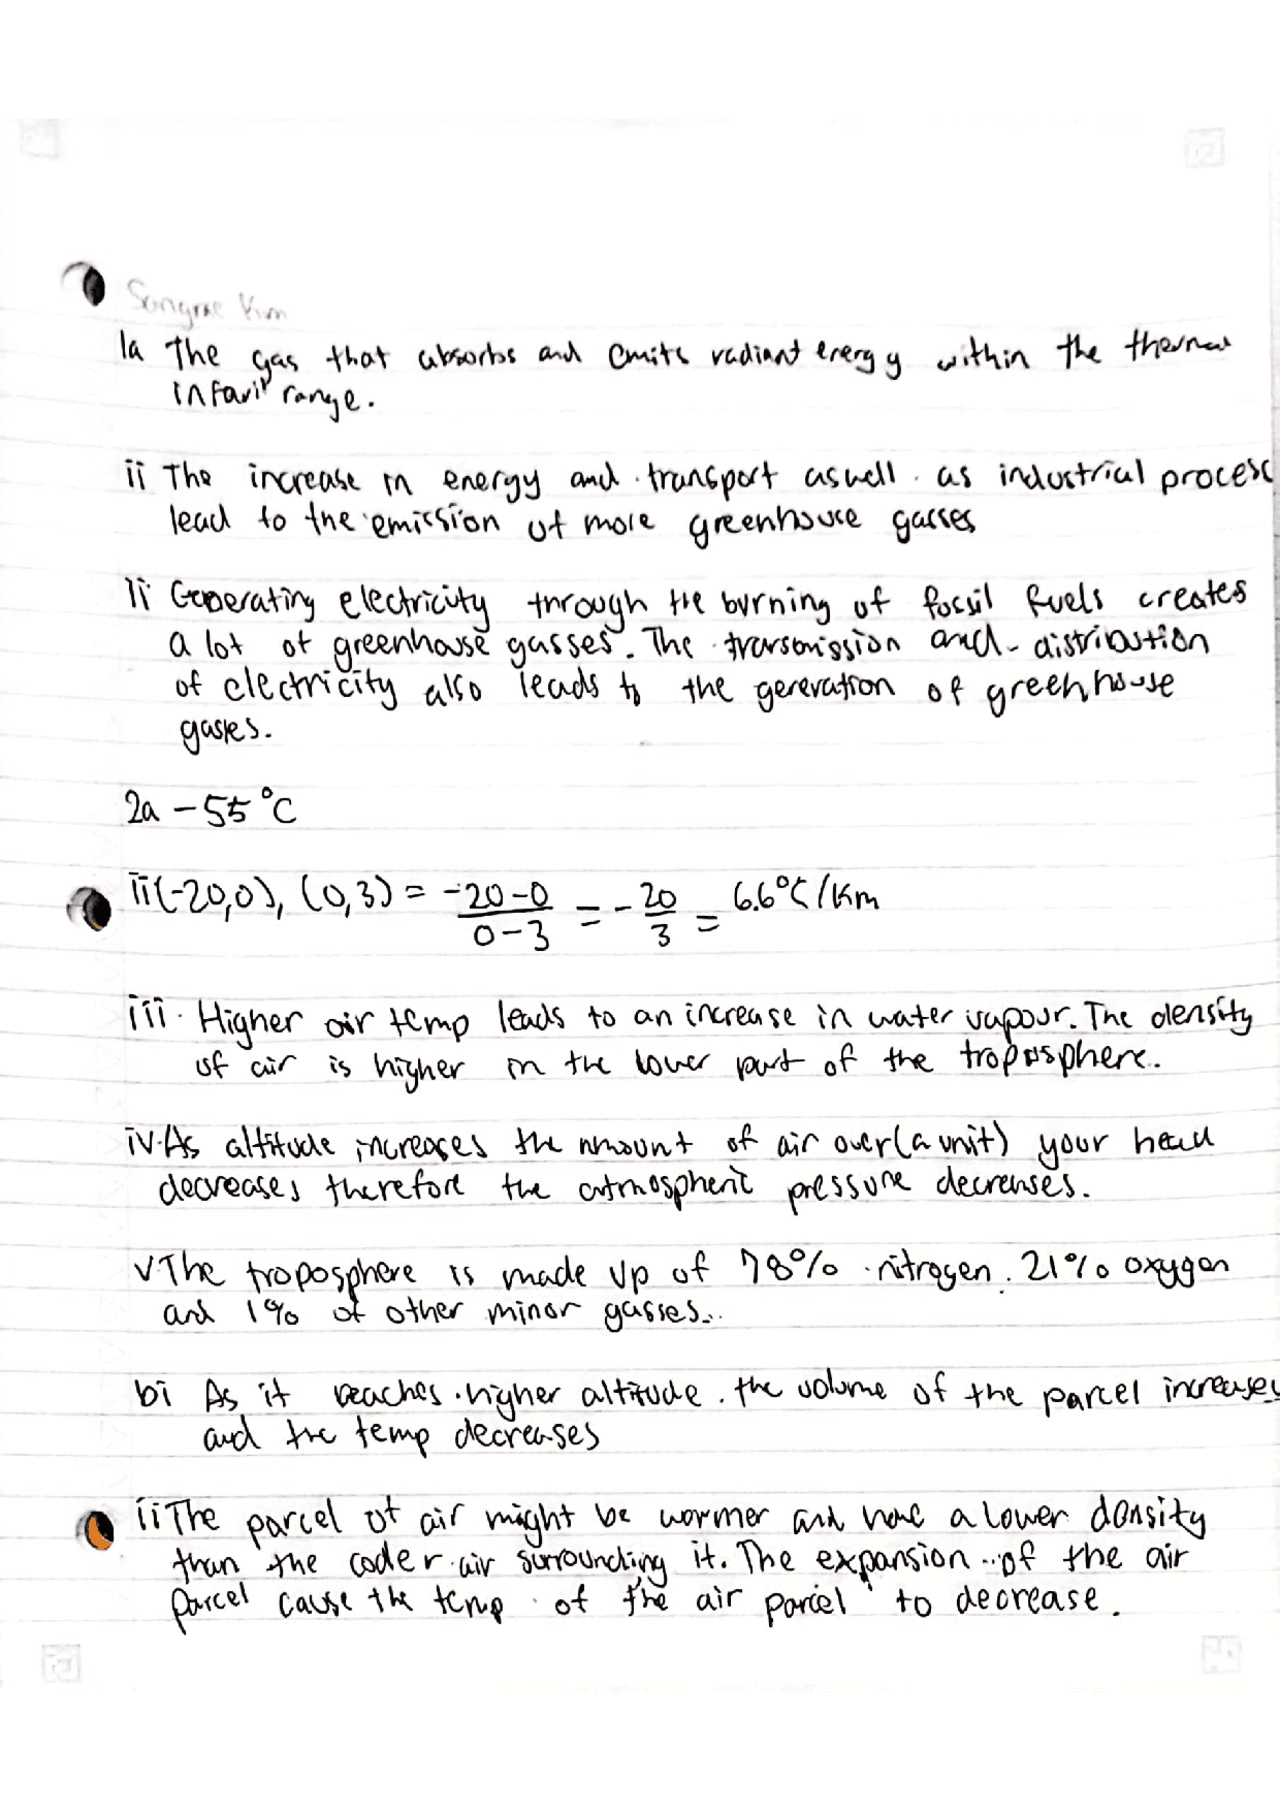 Sangmc Kim
1a The gas that absorbs and emits radiant energy within the thermal
infarir range.
ii The increase in energy and transport aswell as industrial process
lead to the emission of more greenhouse gasses
ii Generating electricity through the burning of fossil fuels creates
a lot of greenhouse gasses. The transmission and distribution
of electricity also leads to the generation of greenhouse
gasses.
2a -55°C
ii (-20,0), (0,3) = -20-0 / 0-3 = - 20/3 = 6.6°C/km
iii. Higher air temp leads to an increase in water vapour. The density
of air is higher in the lower part of the troposphere.
iv. As altitude increases the amount of air over (a unit) your head
decreases therefore the atmospheric pressure decreases.
v. The troposphere is made up of 78% nitrogen. 21% oxygen
and 1% of other minor gasses.
bi As it reaches higher altitude. the volume of the parcel increases
and the temp decreases
ii The parcel of air might be wormer and have a lower density
than the cooler air surrounding it. The expansion of the air
parcel cause the temp of the air parcel to decrease.